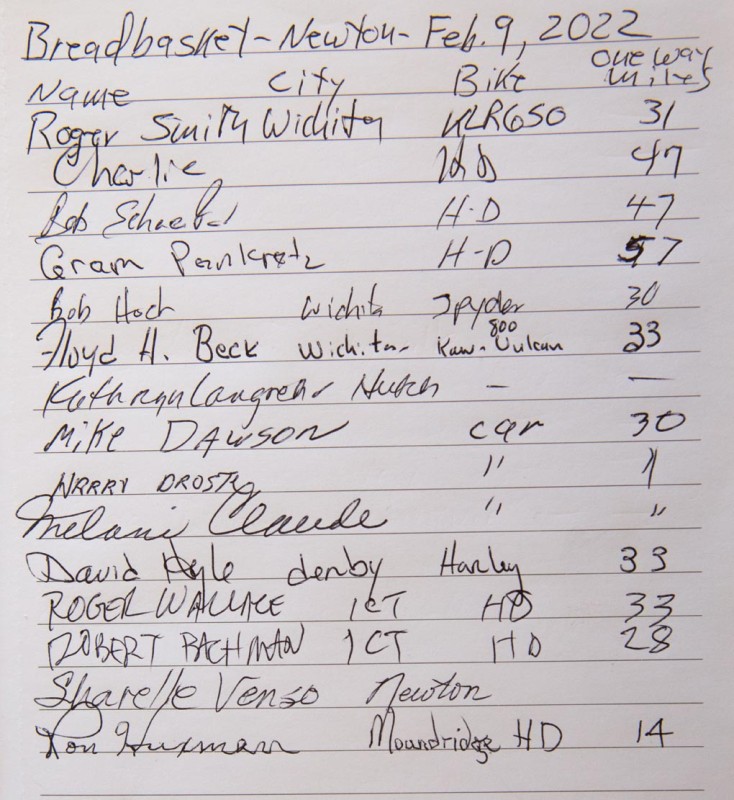 Breadbasket - Newton - Feb. 9, 2022
Name City Bike one way miles
Roger Smith Wichita KLR650 31
Charlie HD 47
Bob H-D 47
Gram Pankratz H-D 57
Bob Hoch Wichita Spyder 30
Floyd H. Beck Wichita Kaw. 800 Vulcan 33
Kathryn Langrehr Hutch — —
Mike DAWSON car 30
HARRY DROSTE " "
Melanie Claude " "
David Kyle derby Harley 33
ROGER WALLACE ICT HD 33
ROBERT BACHMAN ICT HD 28
Sharelle Venso Newton
Ron Huxmann Moundridge HD 14